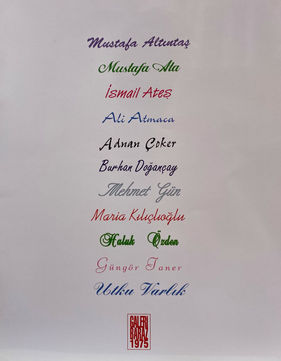 Mustafa Altıntaş
Mustafa Ata
İsmail Ateş
Ali Atmaca
Adnan Çoker
Burhan Doğançay
Mehmet Gün
Maria Kılıçlıoğlu
Haluk Özden
Güngör Taner
Utku Varlık
GALERİ
BARAZ
1975